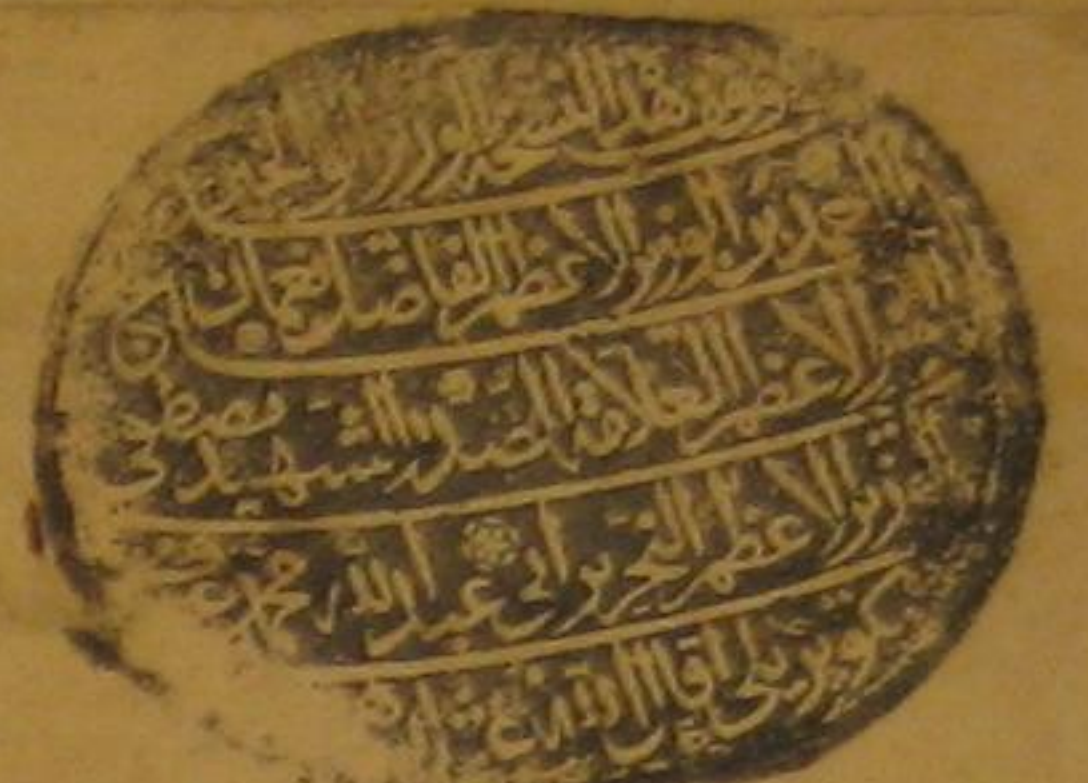 وقف هذا النسخة الوزير ابو الخير
احمد بن الوزير الاعظم الفاضل نعمان بن
الوزير الاعظم العلامة الصدر الشهيد مصطفى
بن الوزير الاعظم النحرير ابي عبد الله محمد
كوپريلي اقال الله عثارهم